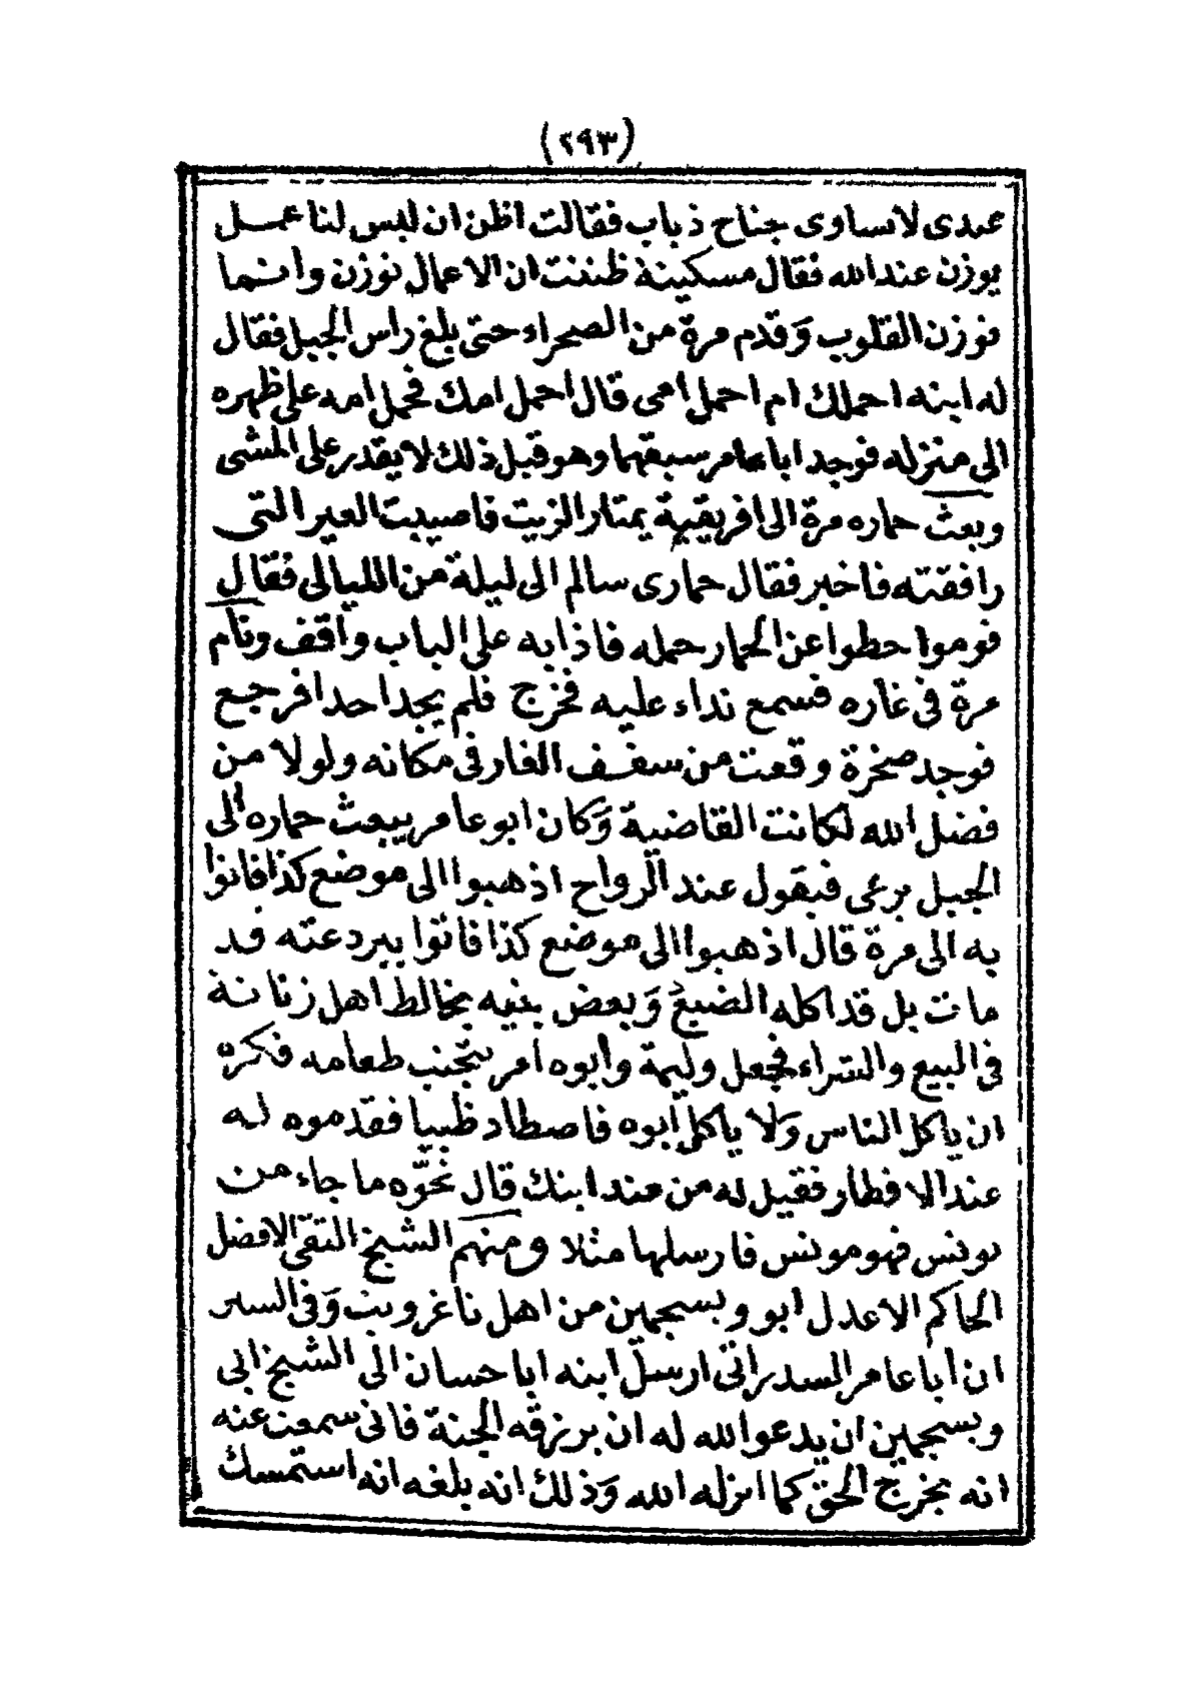 (٢٩٣)
عندى لاتساوى جناح ذباب فقالت اظن ان ليس لنا عمل
يوزن عند الله فقال مسكينة ظننت ان الاعمال توزن وانما
توزن القلوب وقدم مرة من الصحراء حتى بلغ راس الجبل فقال
له ابنه احملك ام احمل امى قال احمل امك فحمل امه على ظهره
الى منزله فوجد ابا عامر سبقهما وهو قبل ذلك لا يقدر على المشى
وبعث حماره مرة الى افريقية يمتار الزيت فاصيبت العير التى
رافقته فاخبر فقال حمارى سالم الى ليلة من الليالى فقال
قوموا حطوا عن الحمار حمله فاذا به على الباب واقف ونام
مرة فى غاره فسمع نداء عليه فخرج فلم يجد احدا فرجع
فوجد صخرة وقعت من سقف الغار فى مكانه ولولا من
فضل الله لكانت القاضية وكان ابو عامر يبعث حماره الى
الجبل يرعى فيقول عند الرواح اذهبوا الى موضع كذا فاتوا
به الى مرة قال اذهبوا الى موضع كذا فاتوا ببردعته قد
مات بل قد اكله الضبع وبعض بنيه يخالط اهل زناتة
فى البيع والشراء فجعل وليمة وابوه امر بتجنب طعامه فكره
ان ياكل الناس ولا ياكل ابوه فاصطاد ظبيا فقدموه له
عند الافطار فقيل له من عند ابنك قال نحّوه ما جاء من
يونس فهو مونس فارسلها مثلا ومنهم الشيخ التقى الافضل
الحاكم الاعدل ابو ويسجمين من اهل تاغرويت وفى السير
ان ابا عامر السدراتى ارسل ابنه ابا حسان الى الشيخ ابى
ويسجمين ان يدعو الله له ان يرزقه الجنة فانى سمعت عنه
انه يخرج الحق كما انزله الله وذلك انه بلغه انه استمسك